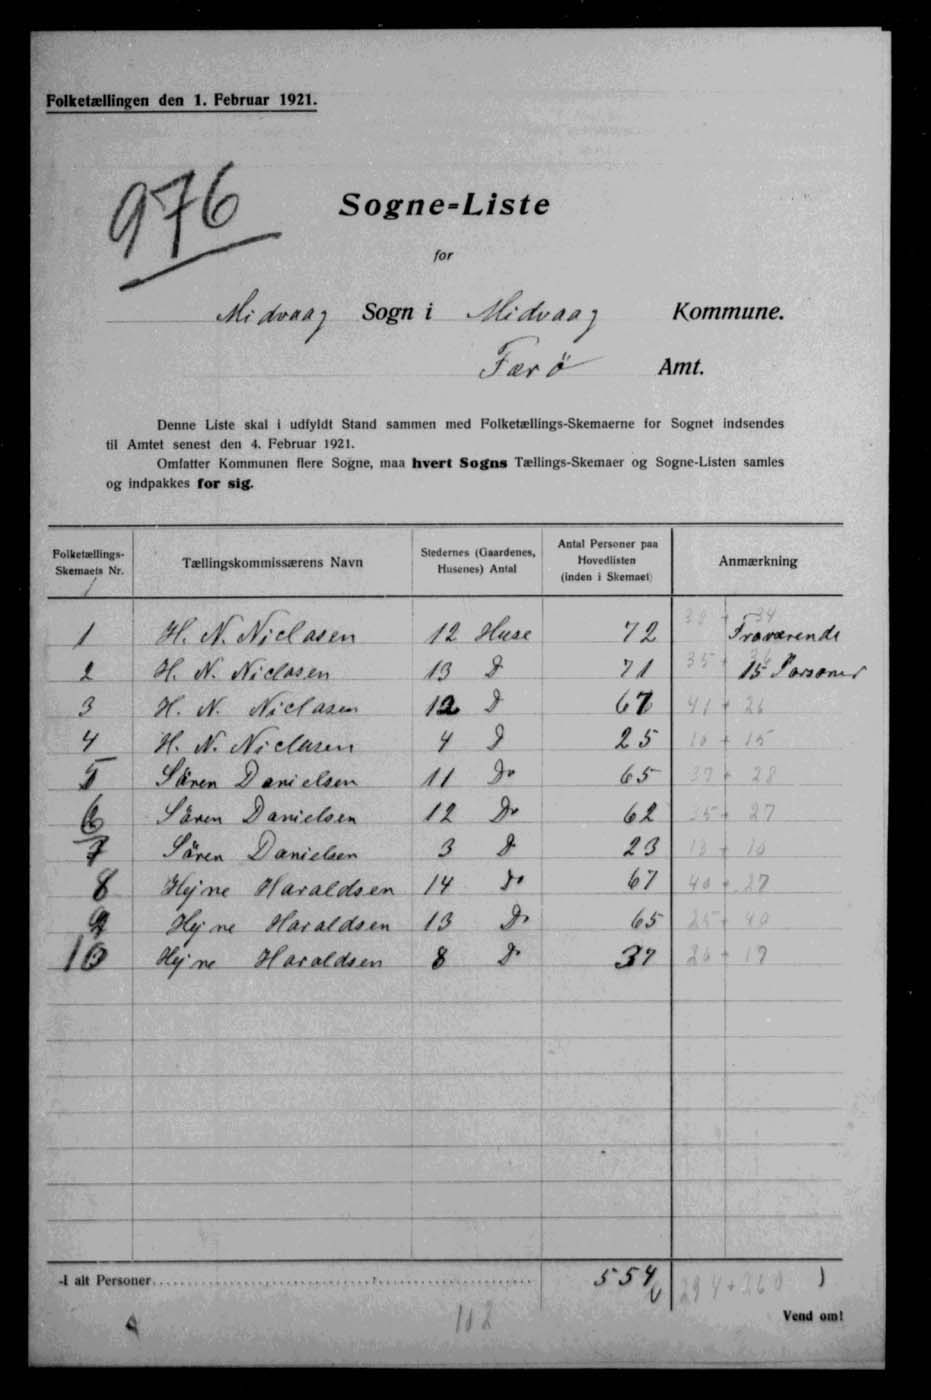 Folketællingen den 1. Februar 1921.
976
Sogne-Liste
for
Midvaag Sogn i Midvaag Kommune.
Færö Amt.
Denne Liste skal i udfyldt Stand sammen med Folketællings-Skemaerne for Sognet indsendes
til Amtet senest den 4. Februar 1921.
Omfatter Kommunen flere Sogne, maa hvert Sogns Tællings-Skemaer og Sogne-Listen samles
og indpakkes for sig.
Folketællings-Skemaets Nr. Tællingskommissærens Navn Stedernes (Gaardenes, Husenes) Antal Antal Personer paa Hovedlisten (inden i Skemaet) Anmærkning
1 H. N. Niclasen 12 Huse 72 38 + 34 Fraværende
2 H. N. Niclasen 13 D 71 35 + 36 15 Personer
3 H. N. Niclasen 12 D 67 41 + 26
4 H. N. Niclasen 4 D 25 10 + 15
5 Sören Danielsen 11 Do 65 37 + 28
6 Sören Danielsen 12 Do 62 35 + 27
7 Sören Danielsen 3 D 23 13 + 10
8 Hejne Haraldsen 14 Do 67 40 + 27
9 Hejne Haraldsen 13 Do 65 25 + 40
10 Hejne Haraldsen 8 Do 37 20 + 17
I alt Personer 554 294 + 260
102
Vend om!